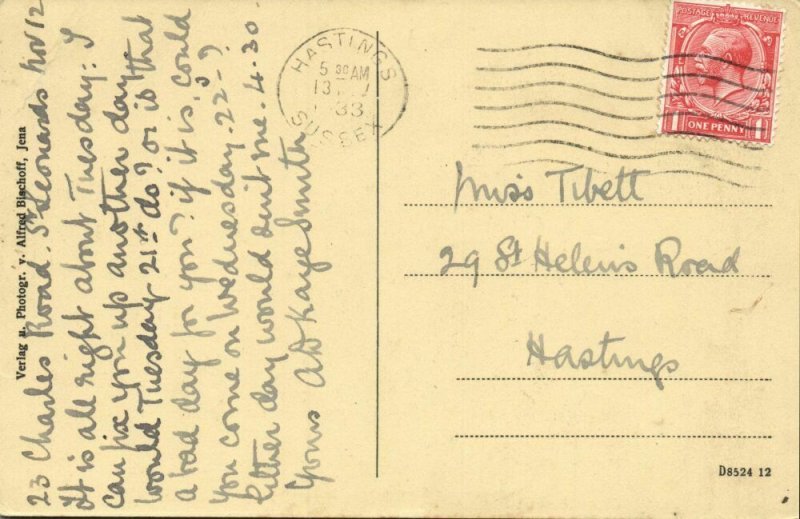 23 Charles Road. St Leonards Nov 12
It is all right about Tuesday: I
can fix you up another day
would Tuesday 21st do? or is that
a bad day for you? if it is, could
you come on Wednesday. 22-?
Either day would suit me. 4.30.
Yours A D Kaye Smith
Verlag u. Photogr. v. Alfred Bischoff, Jena
HASTINGS
5 30 AM
13
33
SUSSEX
POSTAGE REVENUE
ONE PENNY
Miss Tibett
29 St Helens Road
Hastings
D8524 12